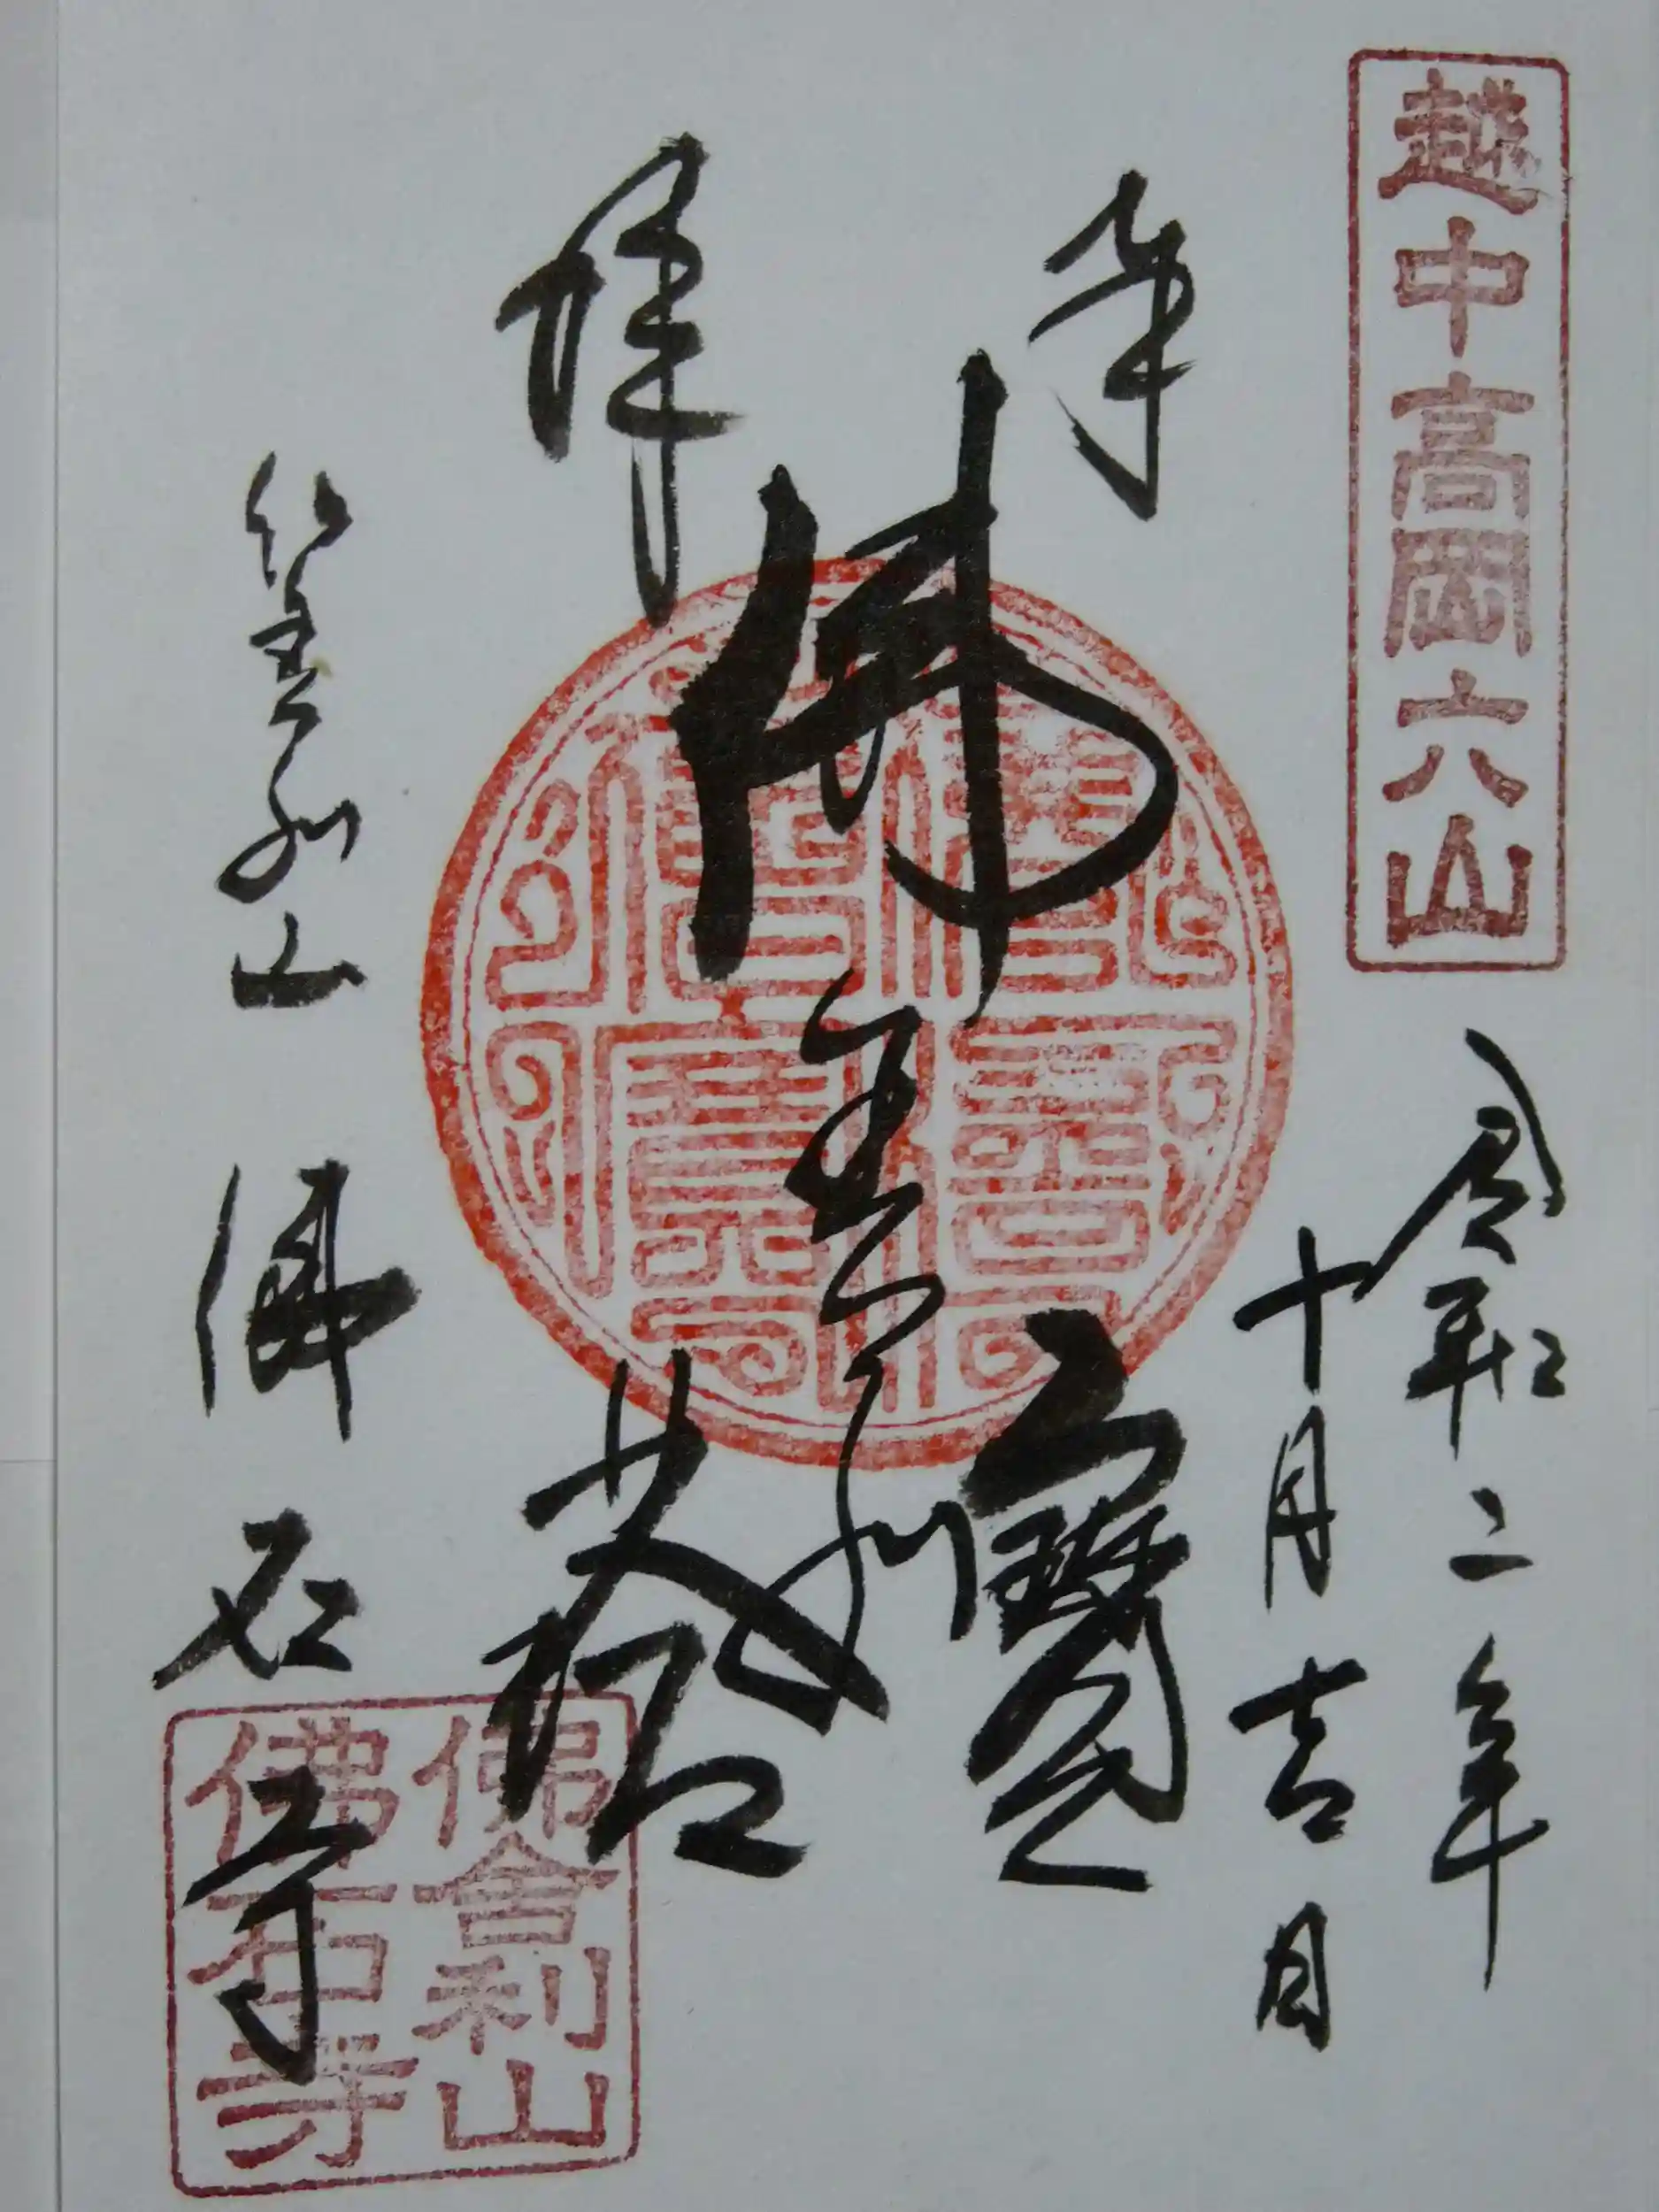 越中高岡六山
令和二年
十月吉日
奉
拝
佛舎利
寶
塔
仏舎利山
佛石寺
佛舎利山
佛石寺